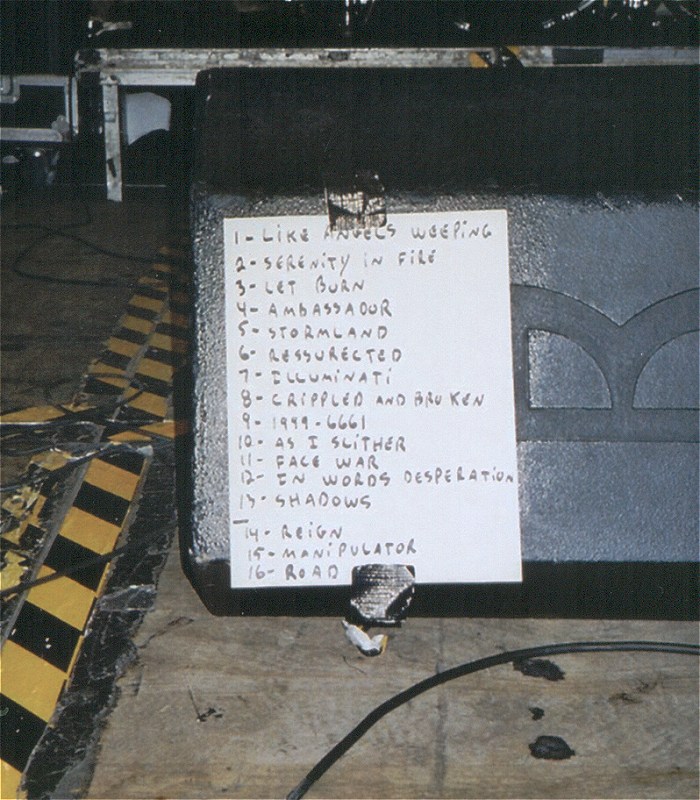 1- LIKE ANGELS WEEPING
2- SERENITY IN FIRE
3- LET BURN
4- AMBASSADOR
5- STORMLAND
6- RESSURECTED
7- ILLUMINATI
8- CRIPPLED AND BROKEN
9- 1999-6661
10- AS I SLITHER
11- FACE WAR
12- IN WORDS DESPERATION
13- SHADOWS
14- REIGN
15- MANIPULATOR
16- ROAD